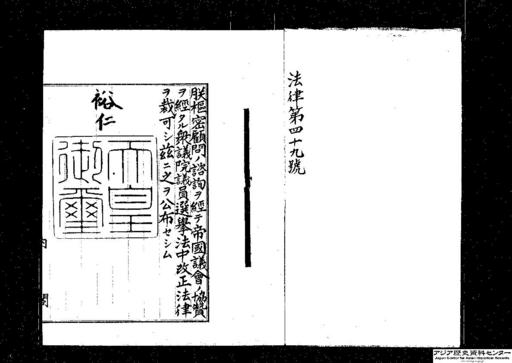 法律第四十九號
朕樞密顧問ノ諮詢ヲ經テ帝國議會ノ協贊
ヲ經タル衆議院議員選擧法中改正法律
ヲ裁可シ茲ニ之ヲ公布セシム
裕仁
天皇
御璽
内閣
アジア歴史資料センター
Japan Center for Asian Historical Records